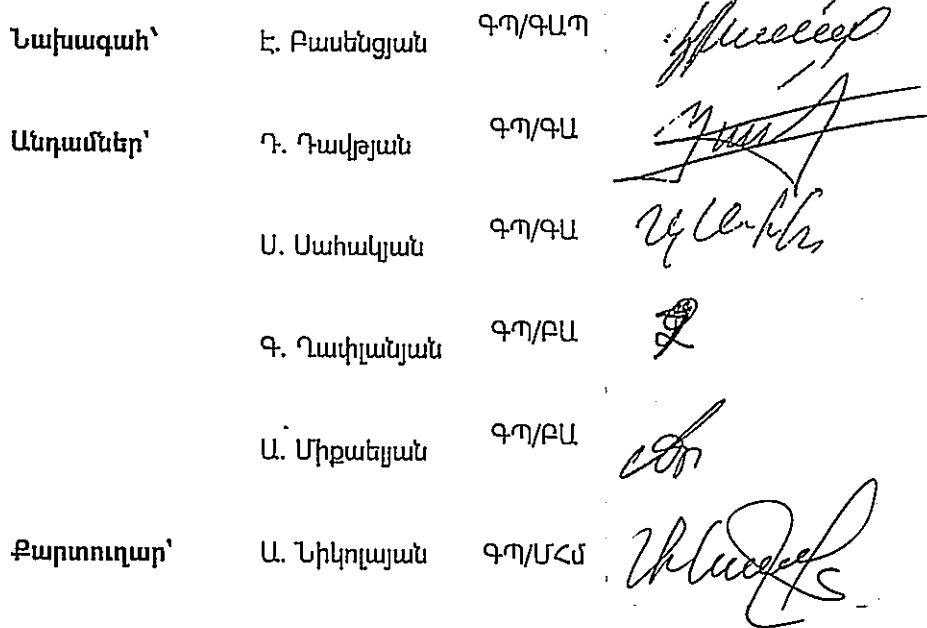 Նախագահ՝ Է. Բասենցյան ԳՊ/ԳԱՊ
Անդամներ՝ Դ. Դավթյան ԳՊ/ԳԱ
Ս. Սահակյան ԳՊ/ԳԱ
Գ. Ղափլանյան ԳՊ/ԲԱ
Ա. Միքաելյան ԳՊ/ԲԱ
Քարտուղար՝ Ա. Նիկոլայան ԳՊ/ՄՀմ